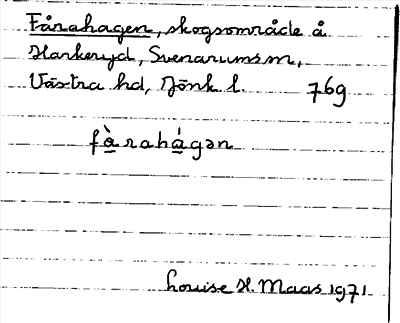 Fårahagen, skogsområde å
Harkeryd, Svenarumsm,
Västra hd, Jönk l. 769
fàrahágən
Louise H. Maas 1971